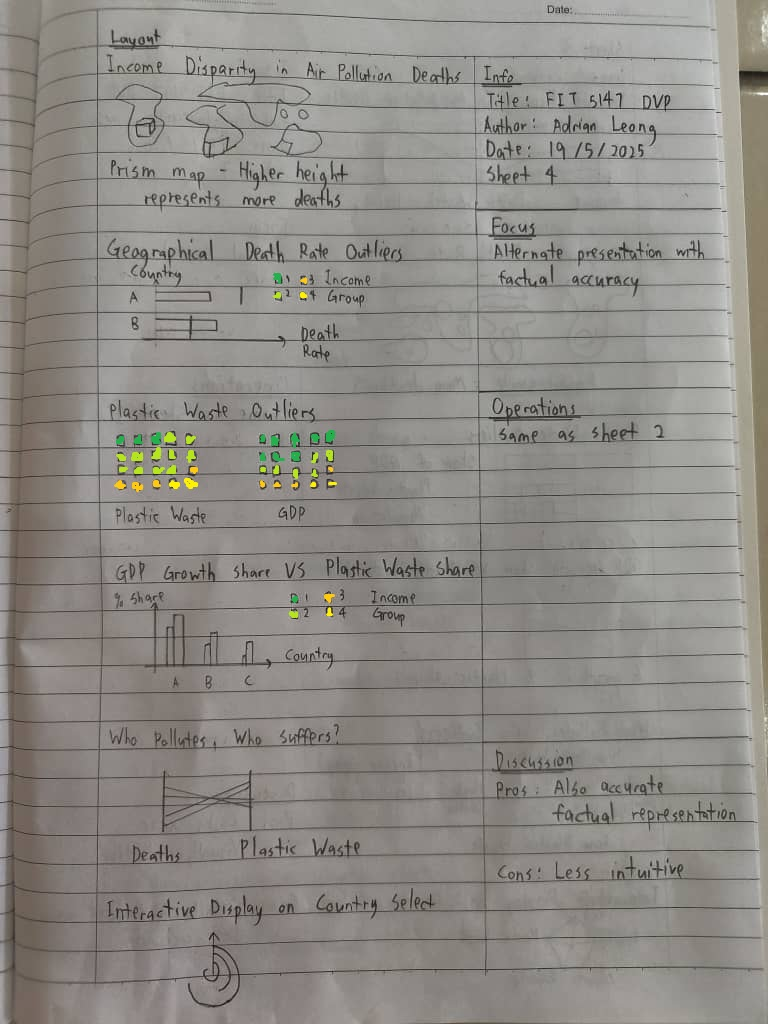 Date:
Layout
Income Disparity in Air Pollution Deaths
Prism map - Higher height
represents more deaths
Geographical Death Rate Outliers
Country
1 3 Income
2 4 Group
A
B
Death
Rate
Plastic Waste Outliers
Plastic Waste GDP
GDP Growth Share VS Plastic Waste Share
% Share
1 3 Income
2 4 Group
Country
A B C
Who Pollutes, Who Suffers?
Deaths Plastic Waste
Interactive Display on Country Select
Info
Title: FIT 5147 DVP
Author: Adrian Leong
Date: 19/5/2025
Sheet 4
Focus
Alternate presentation with
factual accuracy
Operations
Same as sheet 2
Discussion
Pros: Also accurate
factual representation
Cons: Less intuitive